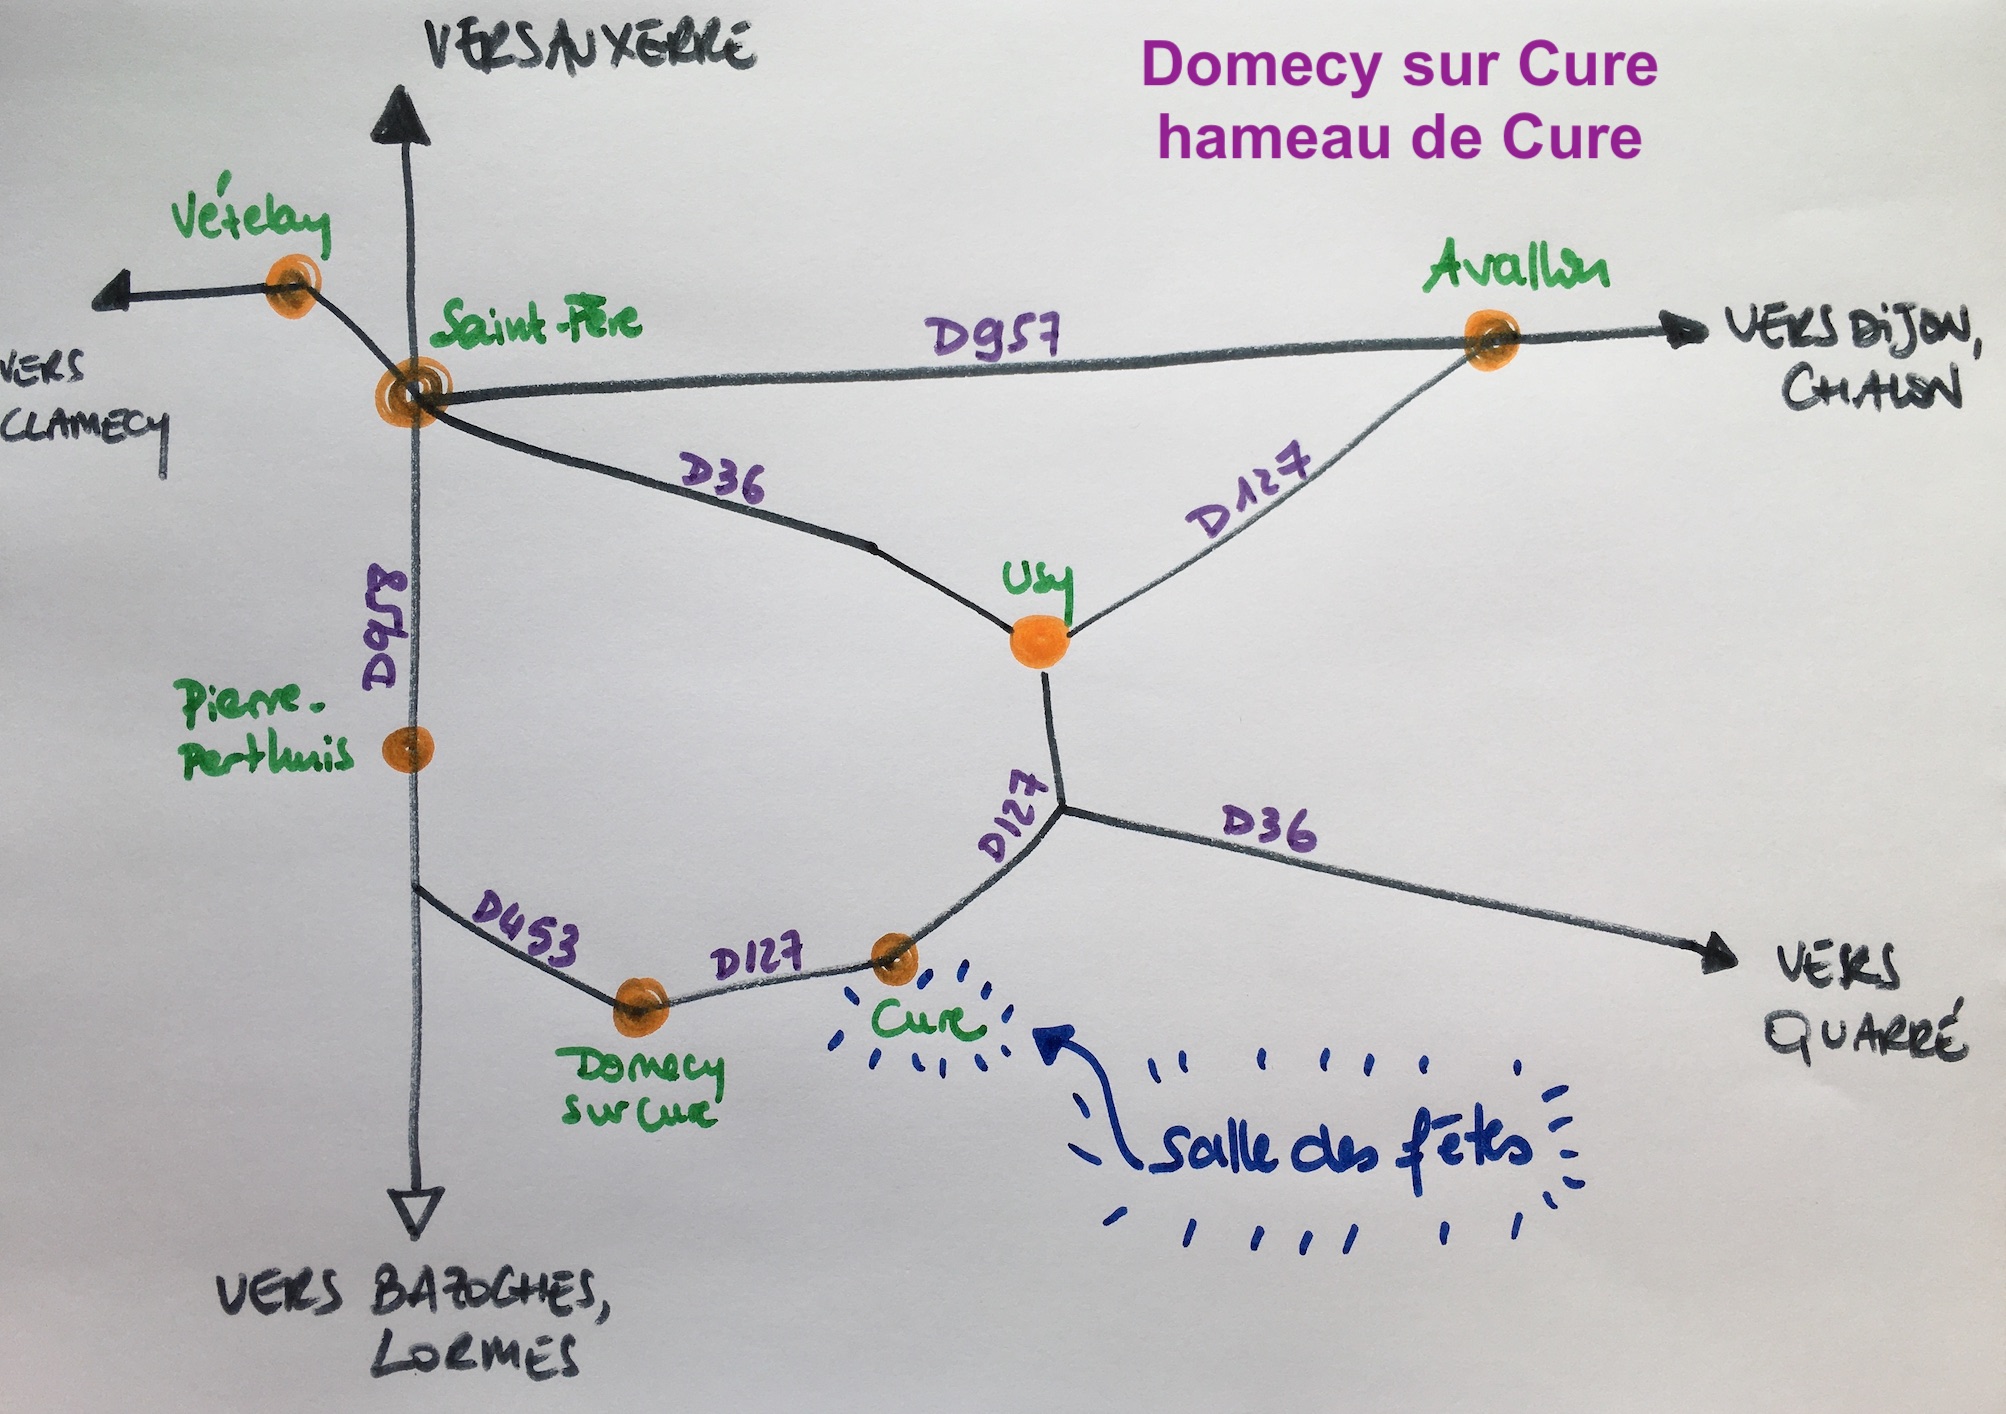 VERS AUXERRE
Domecy sur Cure
hameau de Cure
Vézelay
Saint-Père
Avallon
D957
VERS DIJON,
CHALON
VERS
CLAMECY
D36
D127
Usy
D958
Pierre-
Perthuis
D127
D36
D453
D127
Cure
VERS
QUARRÉ
Domecy
sur Cure
Salle des fêtes
VERS BAZOCHES,
LORMES